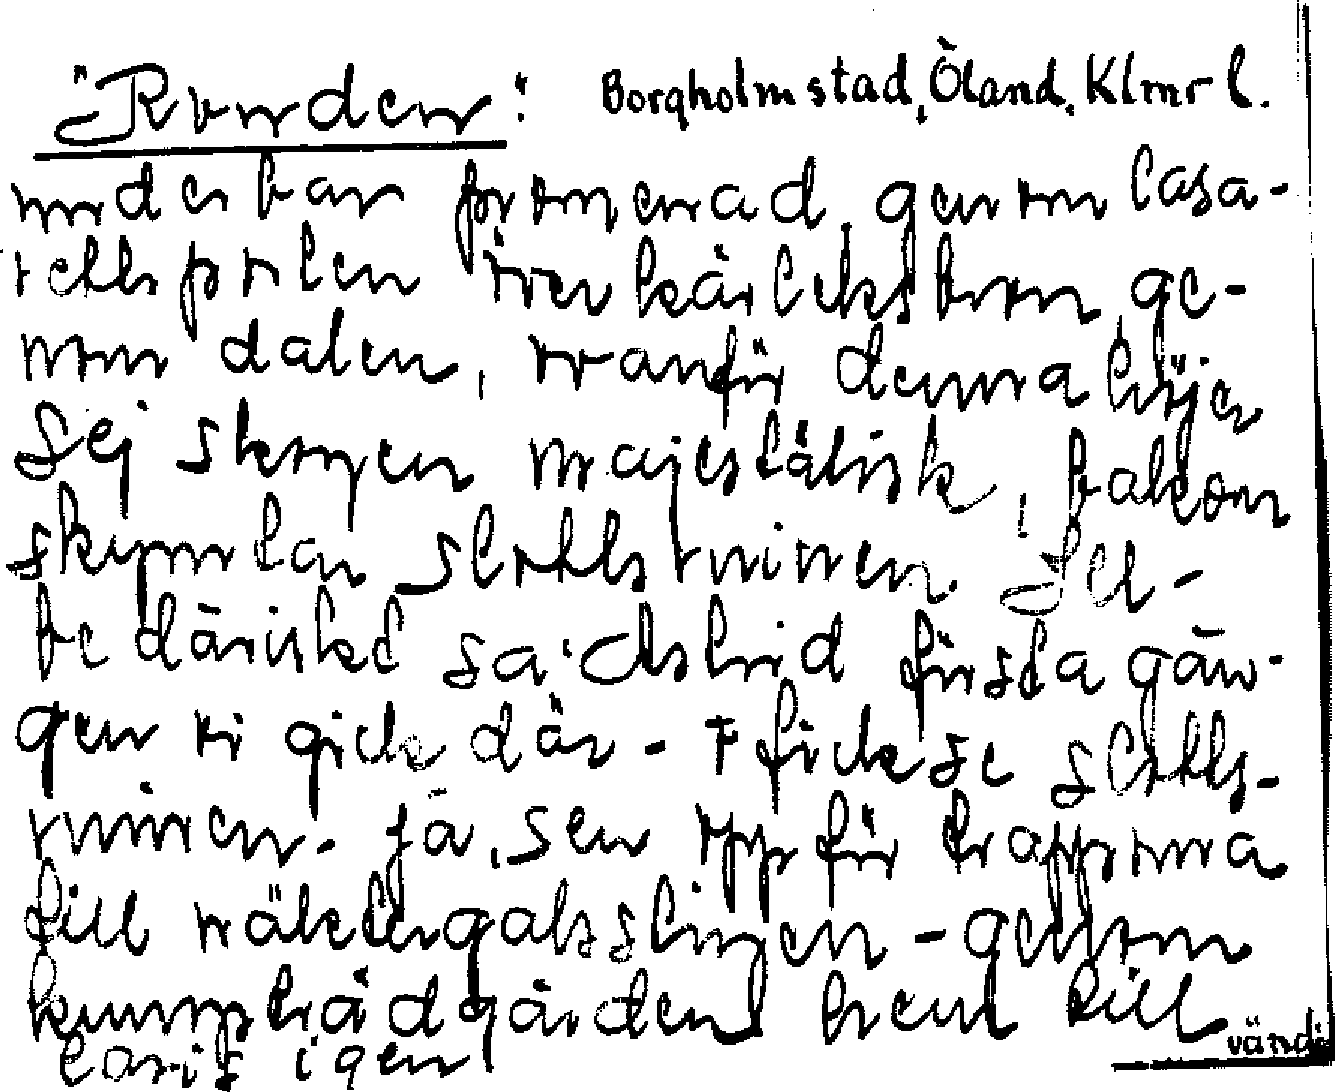 "Runden": Borgholm stad, Öland, Klmr l.
underbar promenad, genom lasa-
rettsparken över kärleksbron, ge-
nom dalen, ovanför denna höjer
sej skogen majestätisk, bakom
skymtar slottsruinen. Fel-
bedärisksd sa' Astrid första gån-
gen vi gick där - o fick se slotts-
ruinen - ja, sen uppför trapporna
till näktergalsstigen - genom
kungsträdgården hem till
Caris igen
vänd